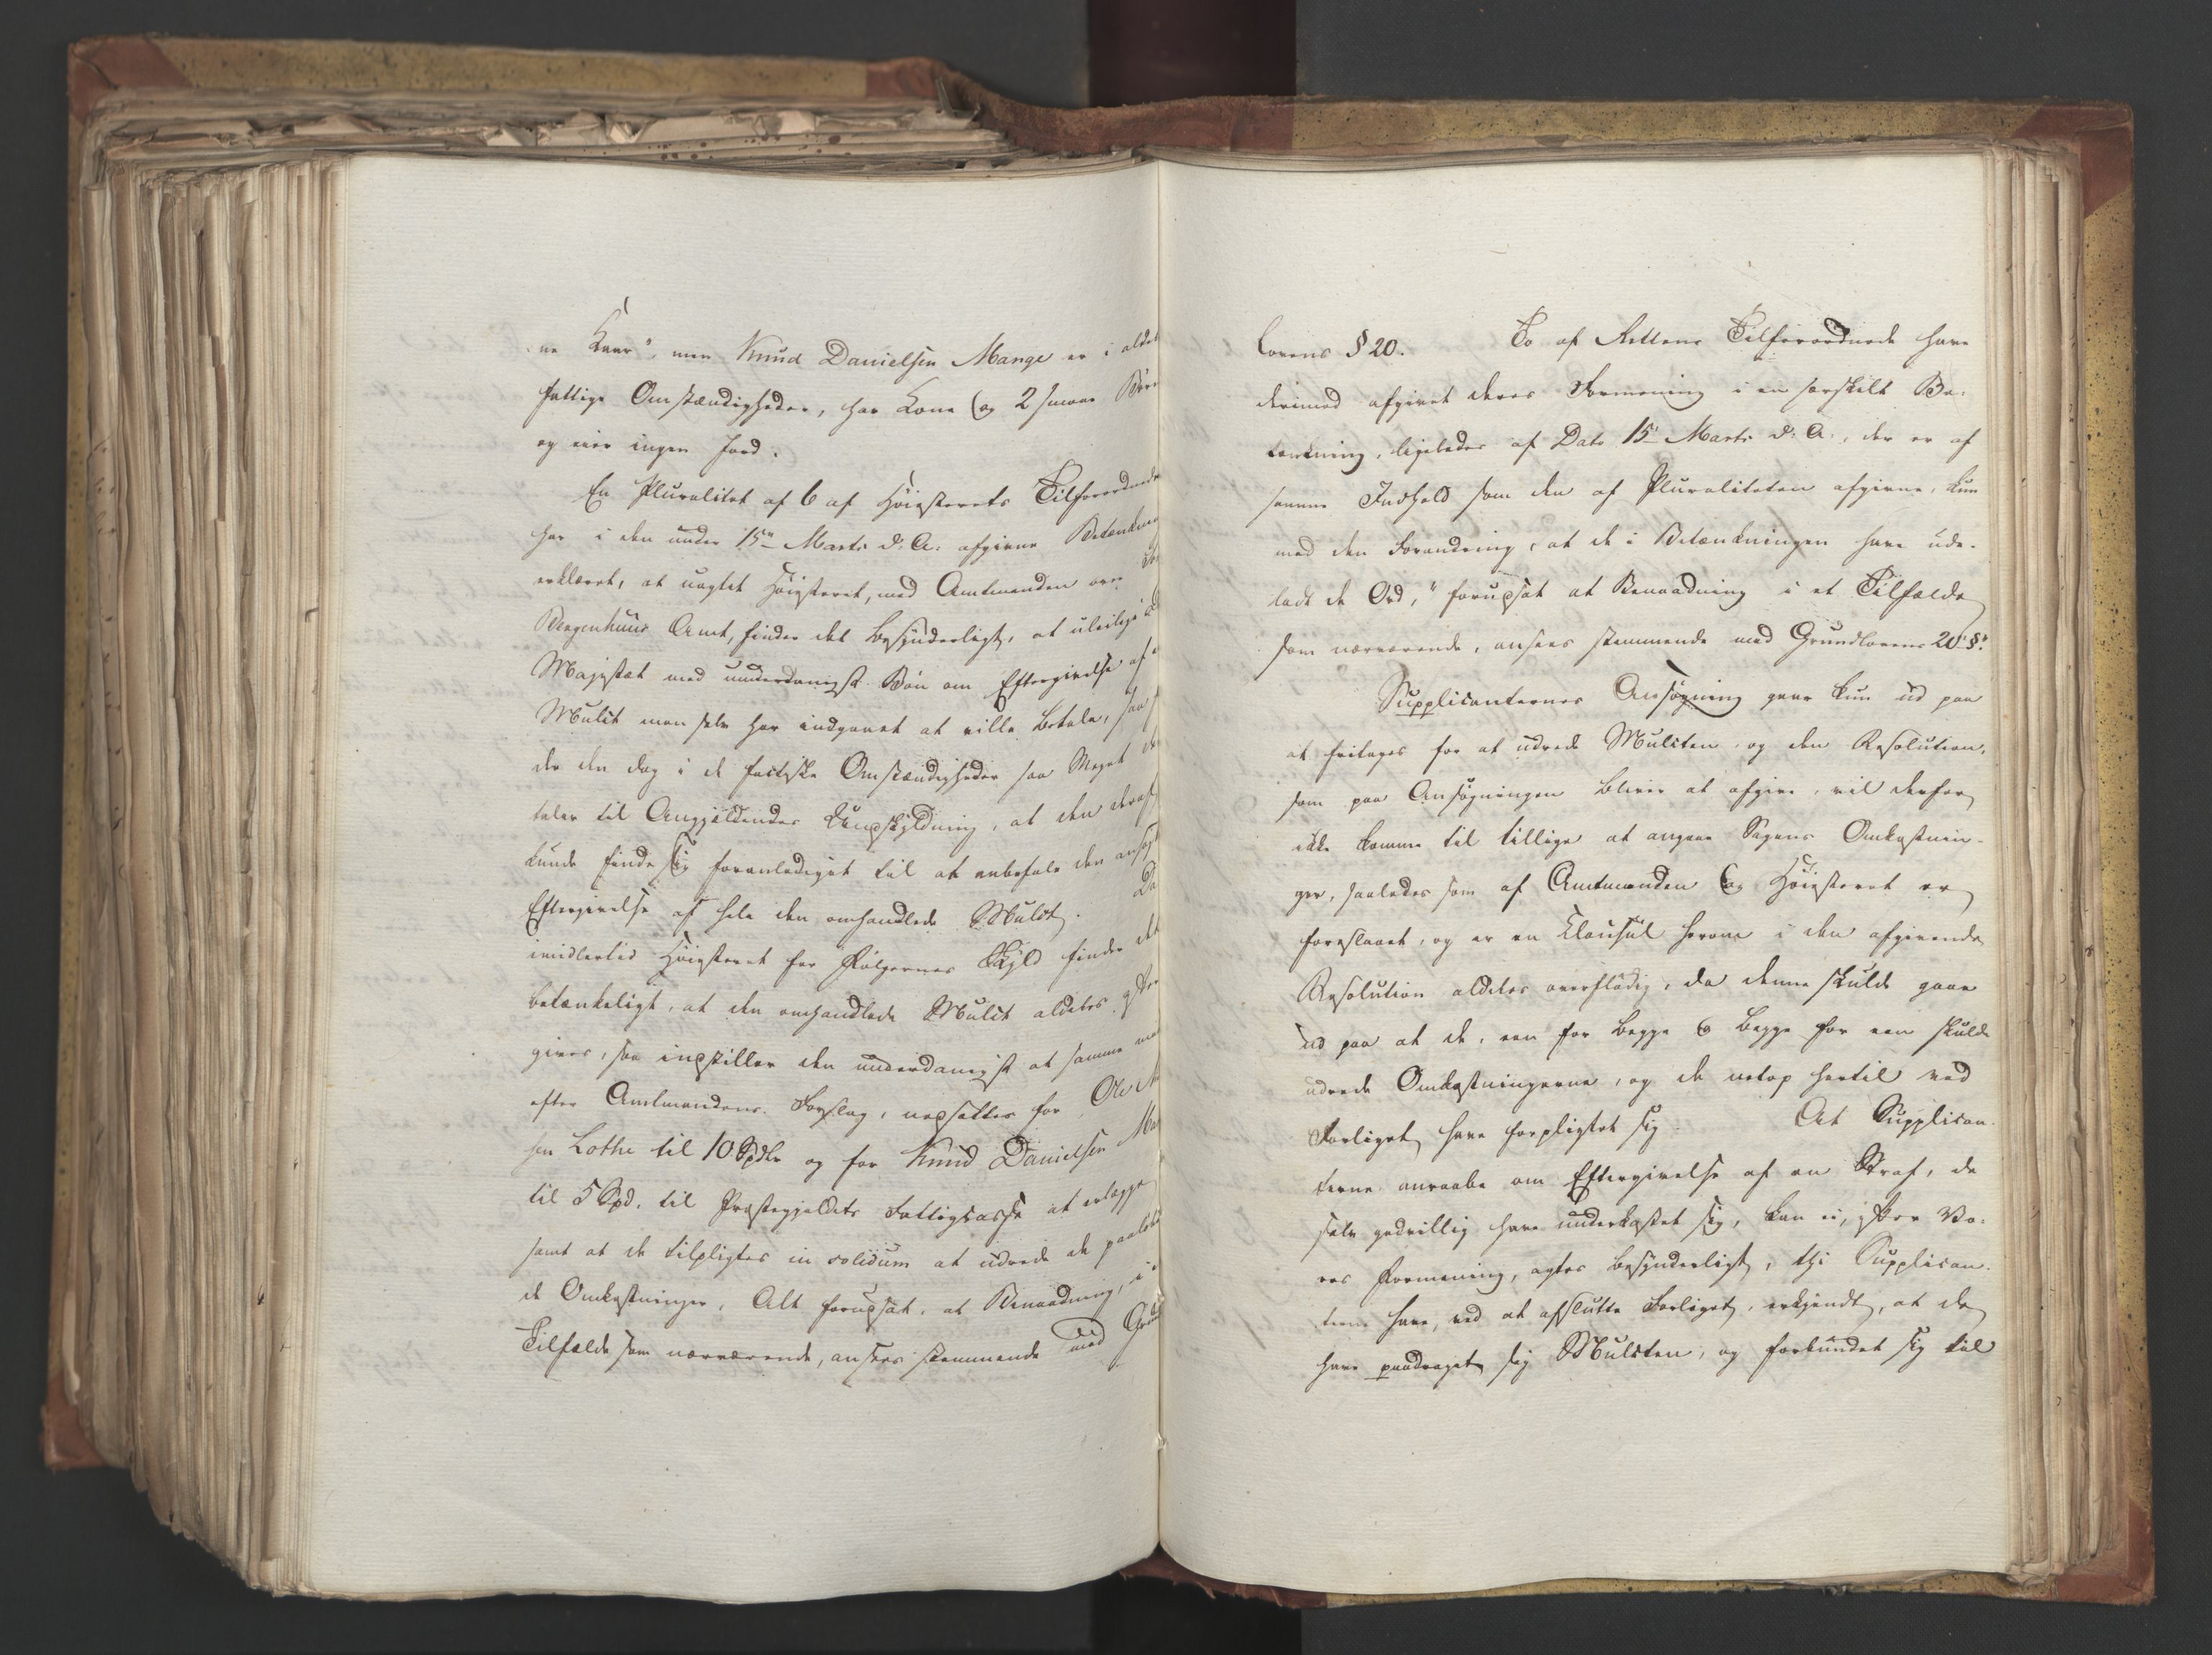 ne Kaar", men Knud Danielsen Mange er i aldel
fattige Omstændigheder, har Kone og 2 smaae Børn
og eier ingen Jord.
En Pluralitet af 6 af Høiesterets Tilforordnede
har i den under 15de Marts d: A: afgivne Betænkning
erklæret, at uagtet Høiesteret, med Amtmanden over
Bergenhuus Amt, finder det besynderligt, at uleilige
Majestæt med underdanigst Bøn om Eftergivelse af
Mulct man selv har indgaaet at ville betale, saa
der den dog i de factiske Omstændigheder saa Meget der
taler til Angjældendes Undskyldning, at den deraf
kunde finde sig foranlediget til at anbefale den ansøgt
Eftergivelse af hele den omhandlede Mulct. Da
imidlertid Høiesteret for Følgernes Skyld finder det
betænkeligt, at den omhandlede Mulct aldeles efter
gives, saa indstiller den underdanigst at samme
efter Amtmandens Forslag, nedsættes for Ole
sen Lothe til 10 Spdlr og for Knud Danielsen Man
til 5 Spd. til Præstegjeldets Fattigcasse at erlægge
samt at de tilpligtes in solidum at udrede de paalø
de Omkostninger. Alt forudsat, at Benaadning, i
Tilfælde som nærværende, ansees stemmende med Grund
lovens § 20. To af Rettens Tilforordnede have
derimod afgivet deres Formening i en særskilt Be-
tænkning, ligeledes af Dato 15 Marts d: A:, der er af
samme Indhold som den af Pluraliteten afgivne, kun
med den Forandring, at de i Betænkningen have ude-
ladt de Ord, "forudsat at Benaadning i et Tilfælde
som nærværende, ansees stemmende med Grundlovens 20 §."
Supplicanternes Ansøgning gaaer kun ud paa
at fritages for at udrede Mulcten, og den Resolution,
som paa Ansøgningen bliver at afgive, vil derfor
ikke komme til tillige at angaae Sagens Omkostnin-
ger, saaledes som af Amtmanden og Høiesteret er
foreslaaet, og er en Clausul herom i den afgivende
Resolution aldeles overflødig, da denne skulde gaae
ud paa at de, een for begge & begge for een skulde
udrede Omkostningerne, og de netop hertil ved
Forliget have forpligtet sig. At Supplican-
terne anraabe om Eftergivelse af en Straf, de
selv godvillig have underkastet sig, kan ei, efter Vo-
res Formening, agtes besynderligt, thi Supplican-
terne have, ved at afslutte Forliget, erkjendt, at de
have paadraget sig Mulcten, og forbundet sig til